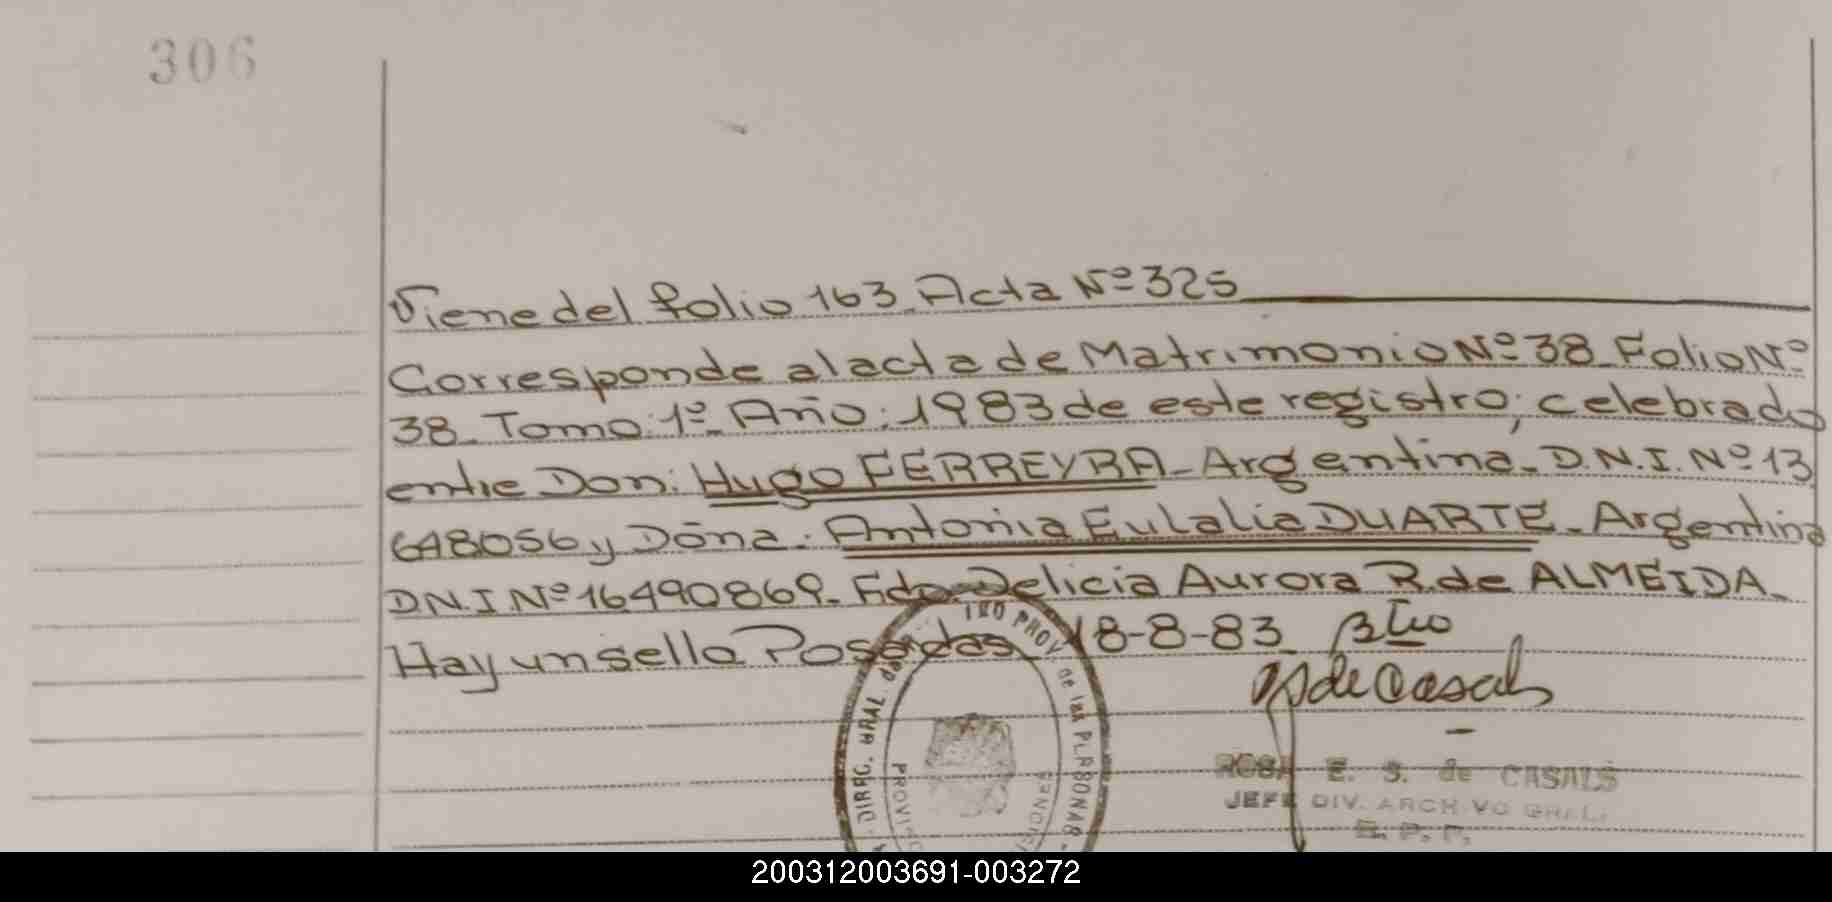 306
Viene del folio 163. Acta Nº 325
Corresponde al acta de Matrimonio Nº 38. Folio Nº
38. Tomo: 1º. Año: 1983 de este registro; celebrado
entre Don: Hugo FERREYRA - Argentina - D.N.I. Nº 13
648056 y Doña: Antonia Eulalia DUARTE - Argentina
D.N.I. Nº 16490869. Fdo. Delicia Aurora R. de ALMEIDA.
Hay un sello Posadas 18-8-83
de Casals
DIREC. GRAL. del REG PROV. de las PERSONAS
ROSA E. S. de CASALS
JEFE DIV. ARCHIVO GRAL.
R. P. P.
200312003691-003272